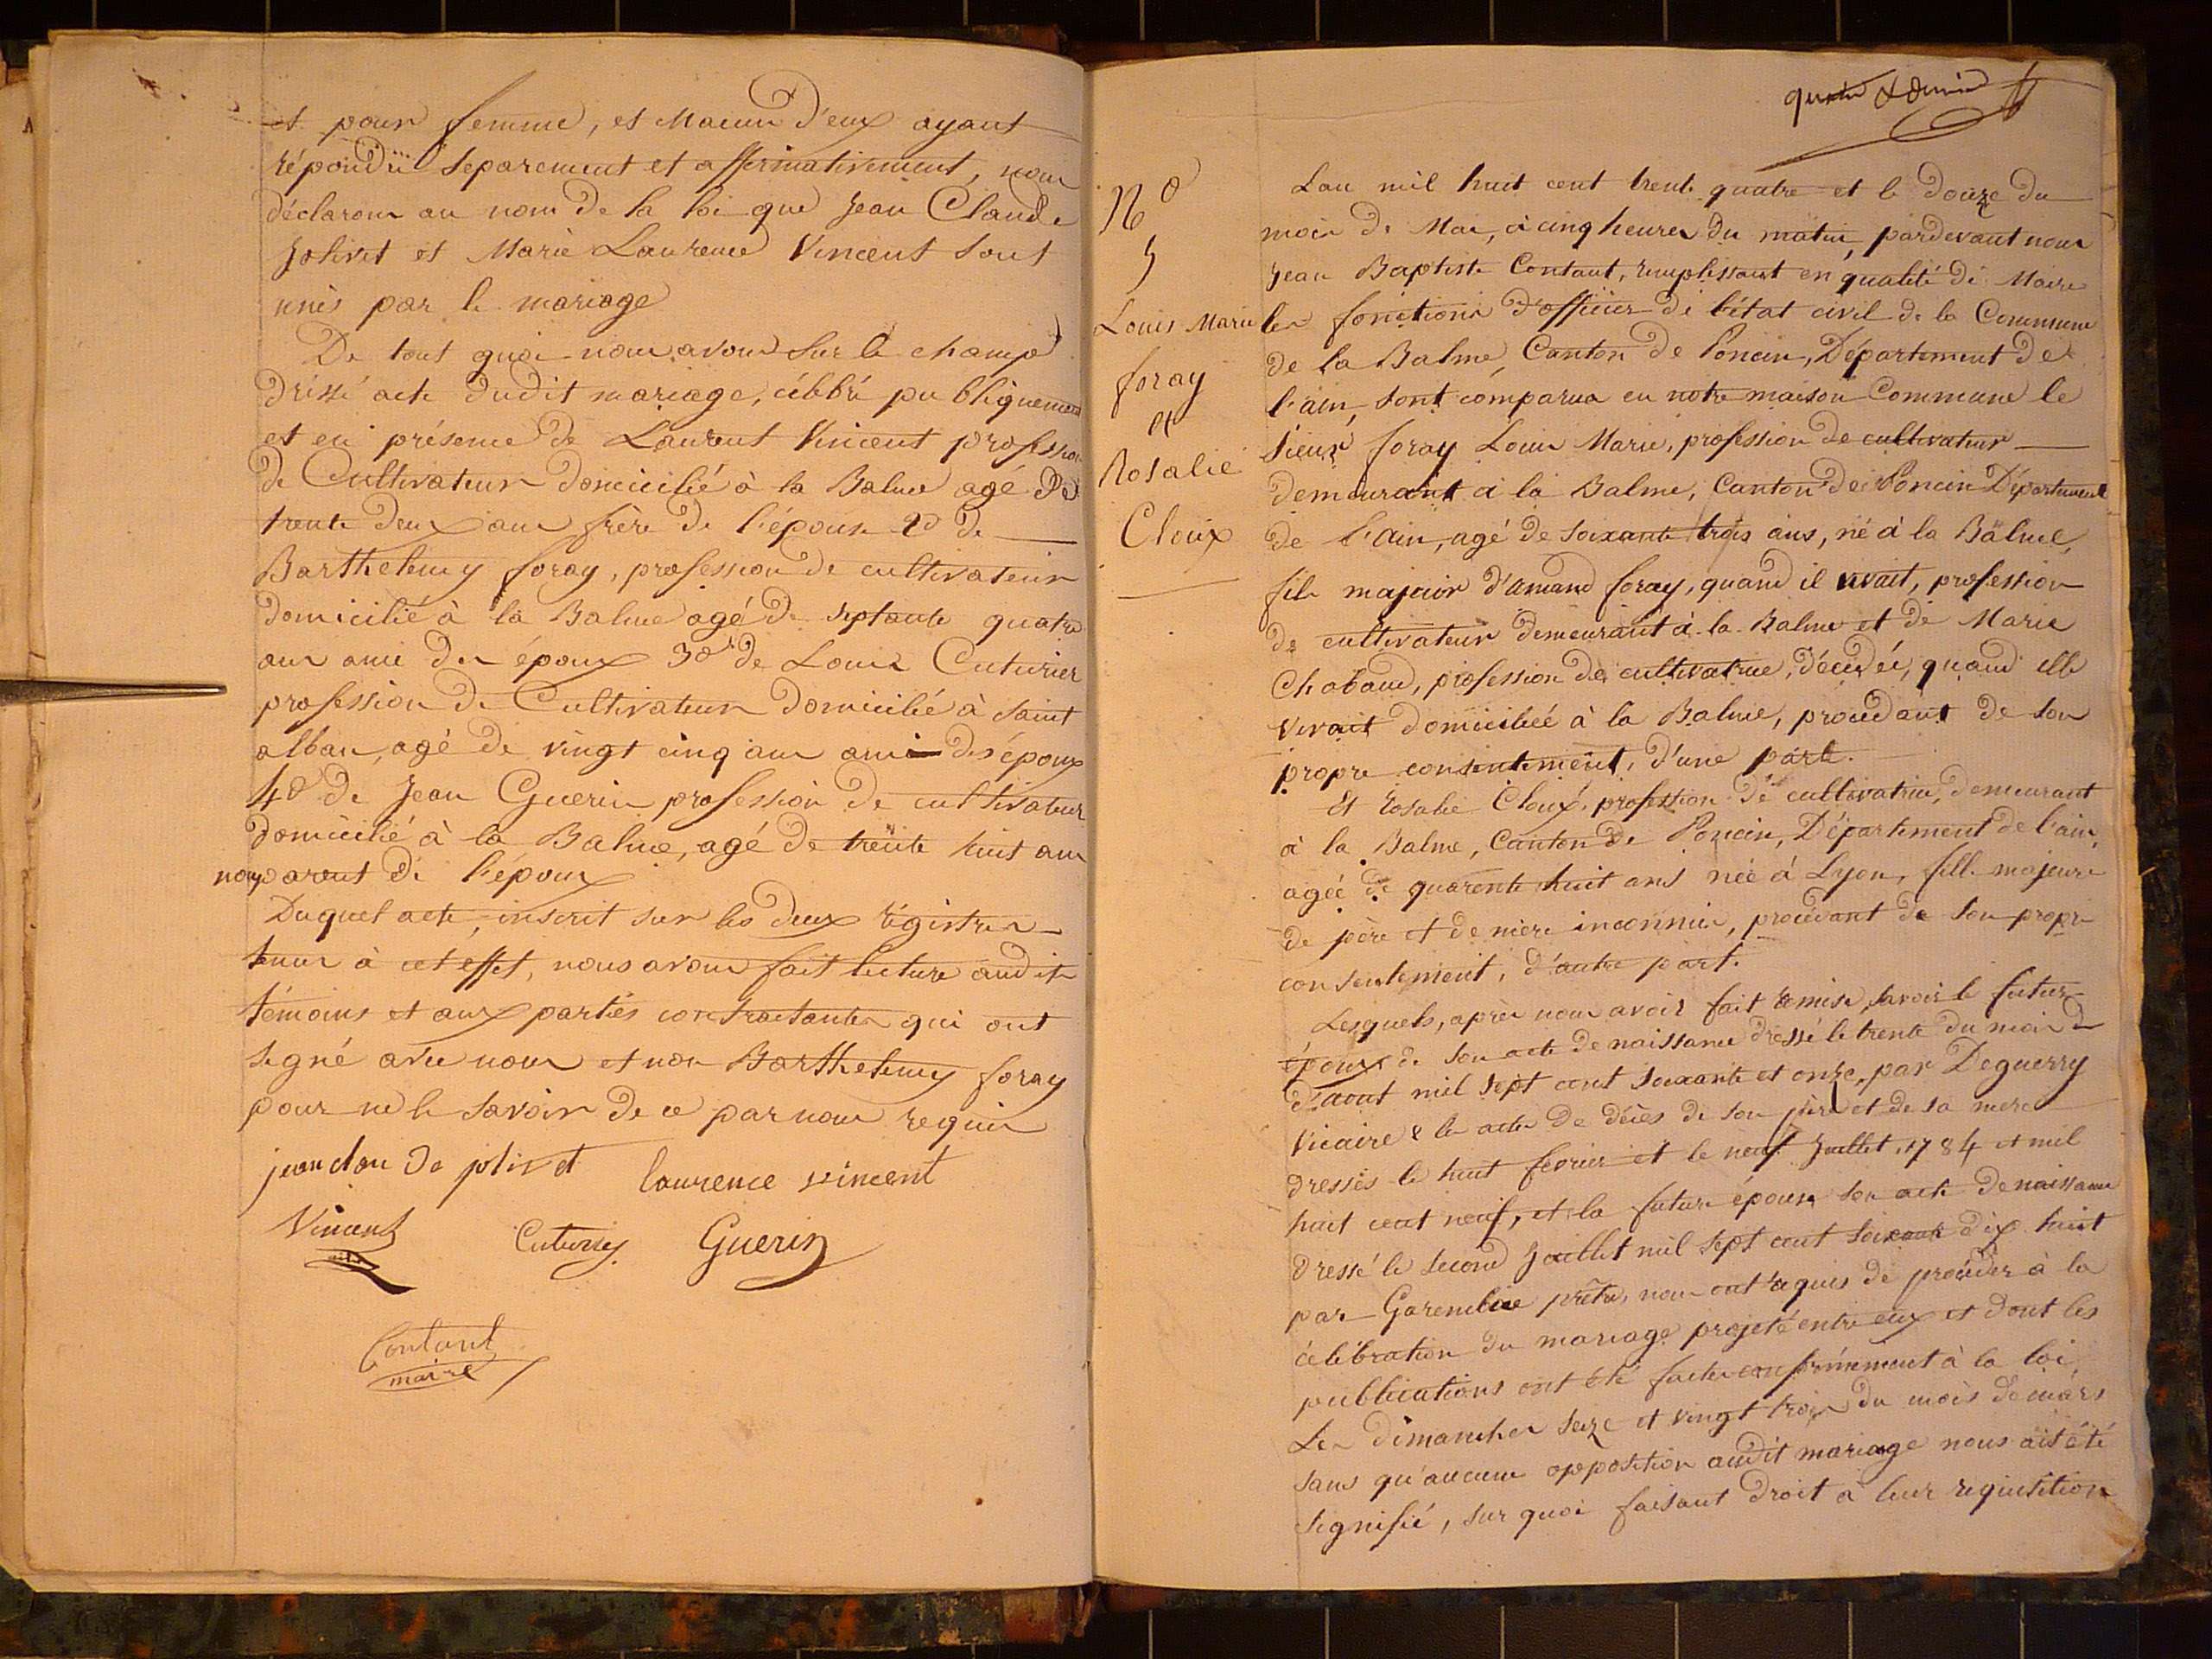 et pour femme, et chacun d'eux ayant
répondu separement et affirmativement, nous
déclarons au nom de la loi que Jean Claude
Jolivet et Marie Laurence Vincent sont
unis par le mariage
De tout quoi nous avons sur le champ
dressé acte dudit mariage, célébré publiquement
et en présence de Laurent Vincent profession
de Cultivateur domicilié à la Balme agé de
trente deux ans frère de l'épouse 2o de
Barthelemy foray, profession de cultivateur
domicilié à la Balme agé de septante quatre
ans ami des époux 3o de Louis Cuturier
profession de Cultivateur domicilié à Saint
alban, agé de vingt cinq ans ami des époux
4o de Jean Guerin profession de cultivateur
domicilié à la Balme, agé de trente huit ans
non parent de l'époux
Duquel acte, inscrit sur les deux régistres
tenus à cet effet, nous avons fait lecture audits
témoins et aux parties contractantes qui ont
signé avec nous et non Barthelemy foray
pour ne le savoir de ce par nous requis
jean clau de jolivet laurence vincent
Vincent Cuturier Guerin
Contant
maire
No
5
Louis Marie
foray
et
Rosalie
Cloux
Lan mil huit cent trente quatre et le douze du
mois de Mai, à cinq heures du matin, pardevant nous
Jean Baptiste Contant, remplissant en qualité de Maire
les fonctions d'officier de l'état civil de la Commune
de la Balme, Canton de Poncin, Département de
l'ain, sont comparus en notre maison Commune le
Sieur foray Louis Marie, profession de cultivateur
demeurant à la Balme, Canton de Poncin Département
de l'ain, agé de soixante trois ans, né à la Balme,
fils majeur d'amand foray, quand il vivait, profession
de cultivateur demeurant à la Balme et de Marie
Chabaud, profession de cultivatrice, décédée, quand elle
vivait domiciliée à la Balme, procédant de son
propre consentement, d'une part.
Et Rosalie Cloux, profession de cultivatrice, demeurant
à la Balme, Canton de Poncin, Département de l'ain,
agée de quarente huit ans née à Lyon, fille majeure
de père et de mère inconnus, procédant de son propre
consentement, d'autre part.
Lesquels, après nous avoir fait remise, savoir le futur
époux de son acte de naissance dressé le trente du mois
d'aout mil sept cent soixante et onze, par Deguerry
Vicaire & les actes de décès de son père et de sa mere
dressés le huit fevrier et le neuf Juillet, 1784 et mil
huit cent neuf, et la future épouse son acte de naissance
dressé le second Juillet mil sept cent soixante dix huit
par prêtre, nous ont requis de procéder à la
célébration du mariage projeté entre eux et dont les
publications ont été faites conformément à la loi,
Les dimanches seize et vingt trois du mois de mars
sans qu'aucune opposition audit mariage nous ait été
signifié, sur quoi faisant droit à leur requisition